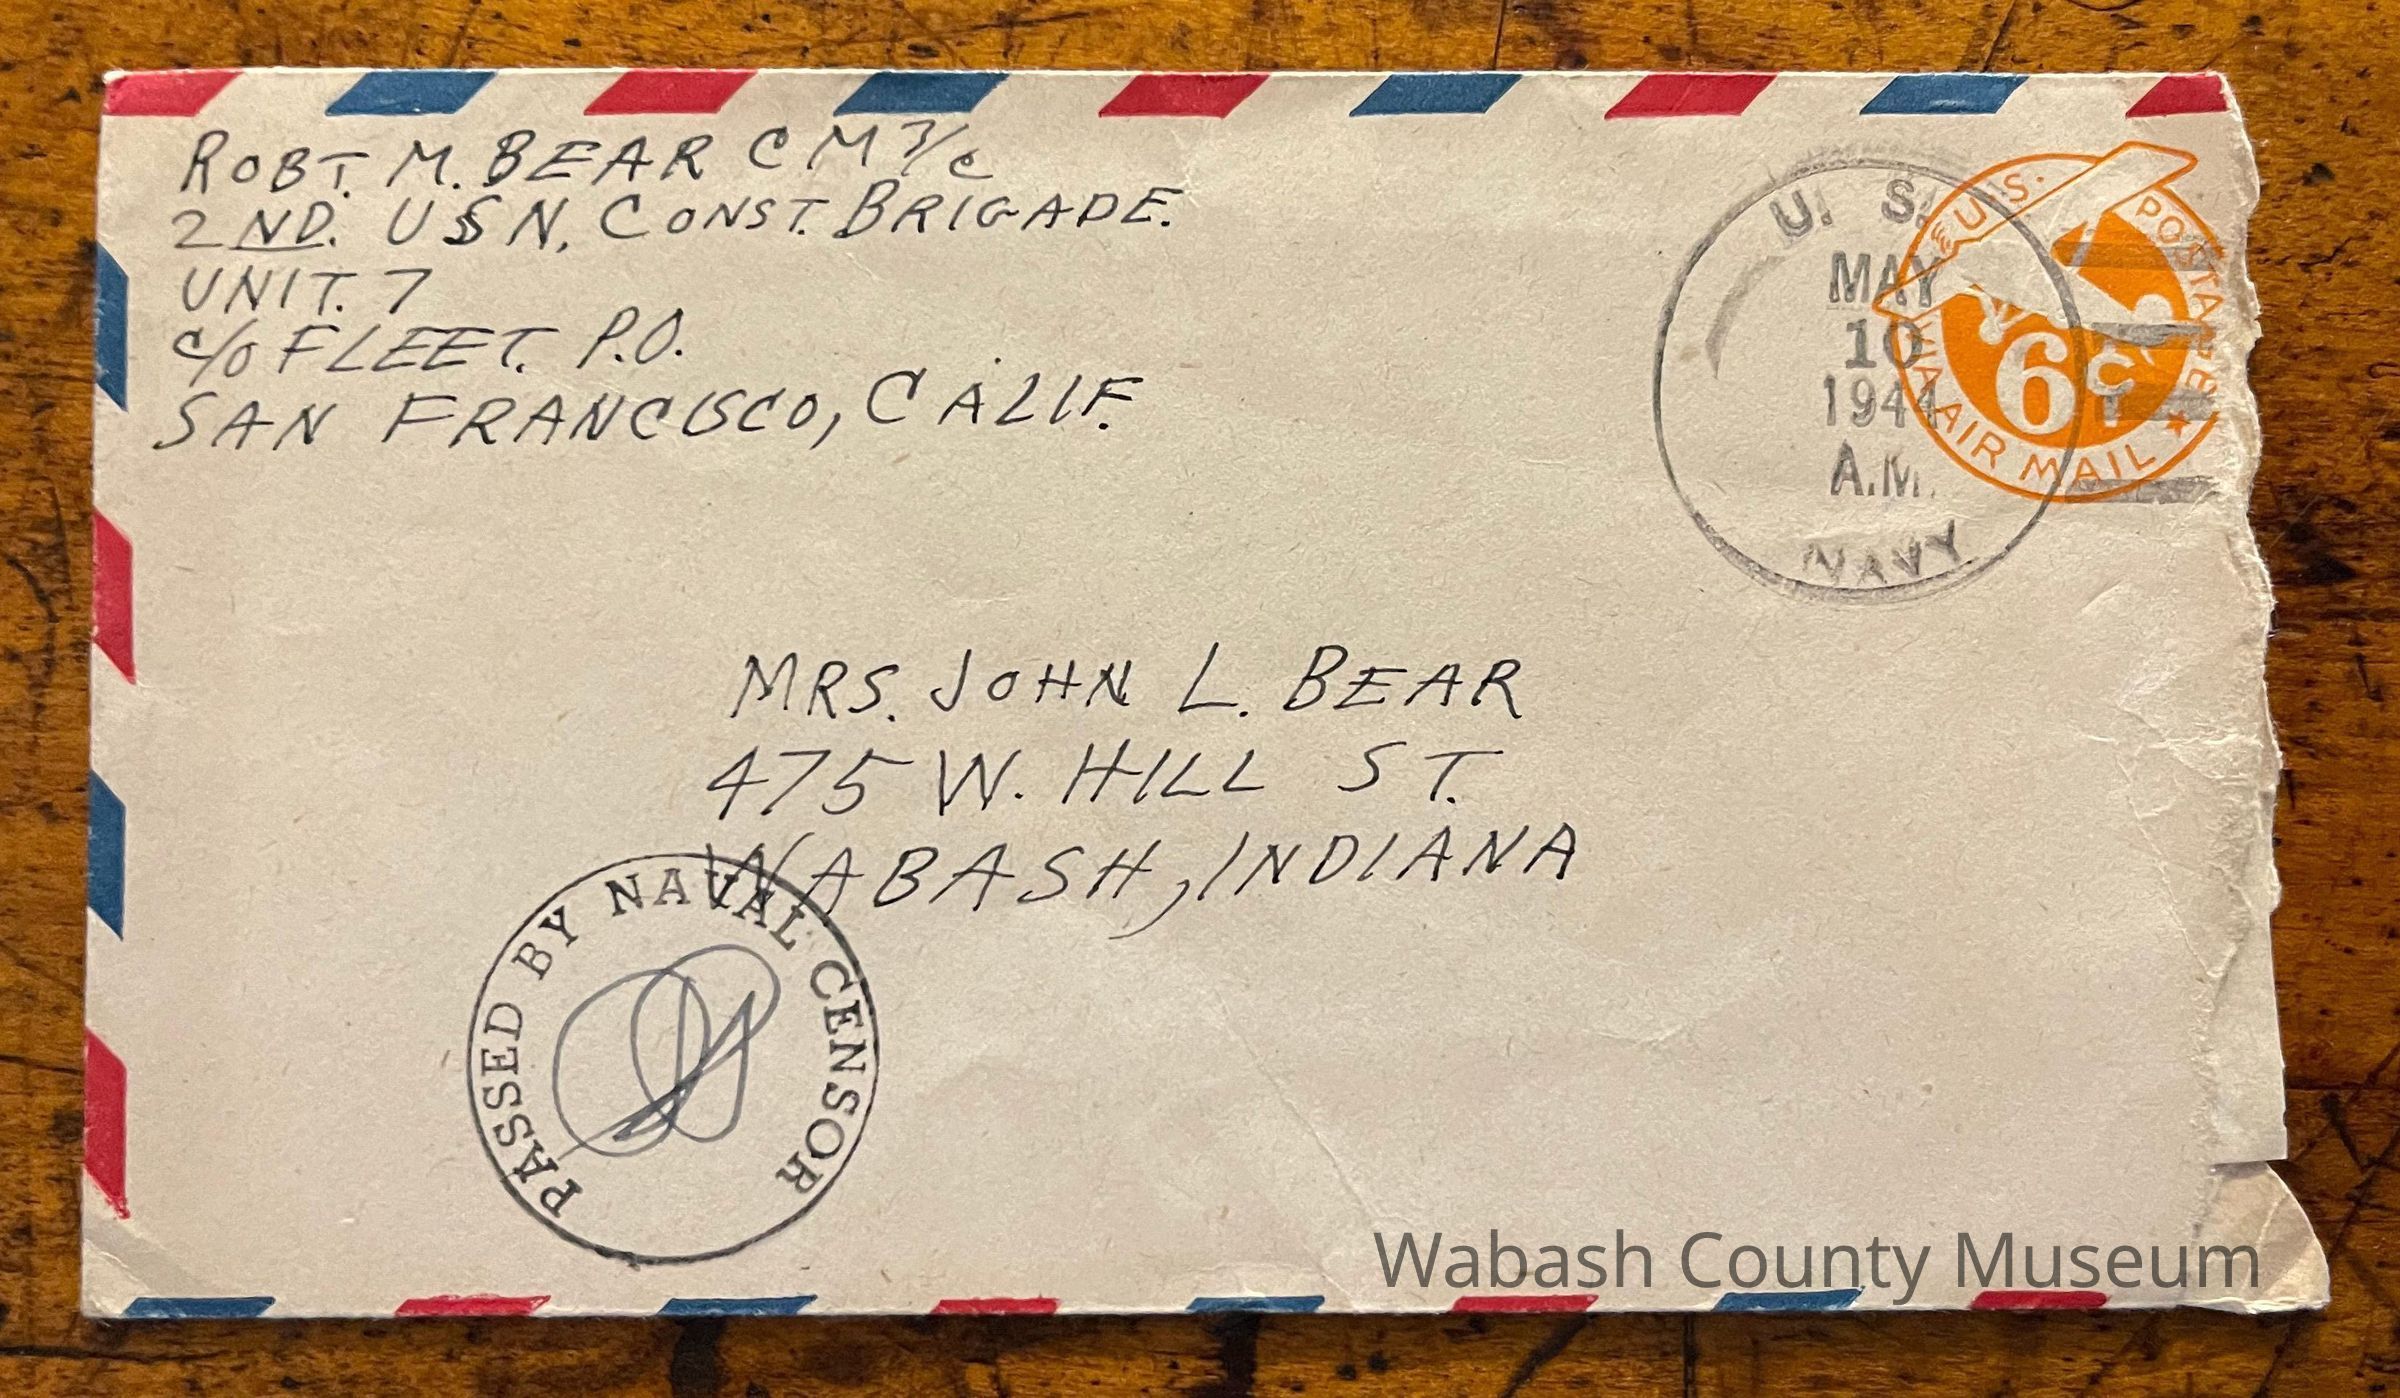 ROBT. M. BEAR C M 3/c
2ND. USN, CONST. BRIGADE.
UNIT. 7
c/o FLEET. P.O.
SAN FRANCISCO, CALIF.
U. S.
MAY
10
1944
A.M.
NAVY
U.S. POSTAGE
6¢
VIA AIR MAIL
MRS. JOHN L. BEAR
475 W. HILL ST.
WABASH, INDIANA
PASSED BY NAVAL CENSOR
Wabash County Museum